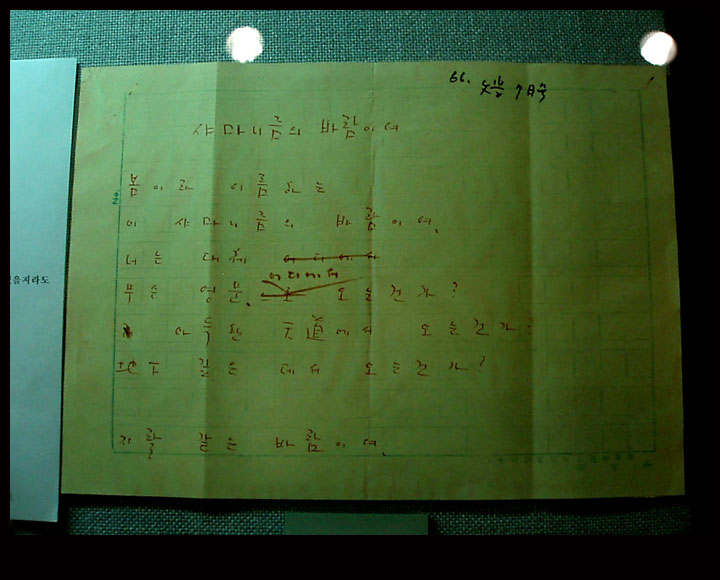 66.
7月
샤마니즘의 바람이여
봄이라 이름한는
이 샤마니즘의 바람이여,
너는 대체
어디에서
무슨 영문, 오는건가?
아득한 天道에서 오는건가?
같은 데서 오는건가?
지랄 같은 바람이여
을지라도